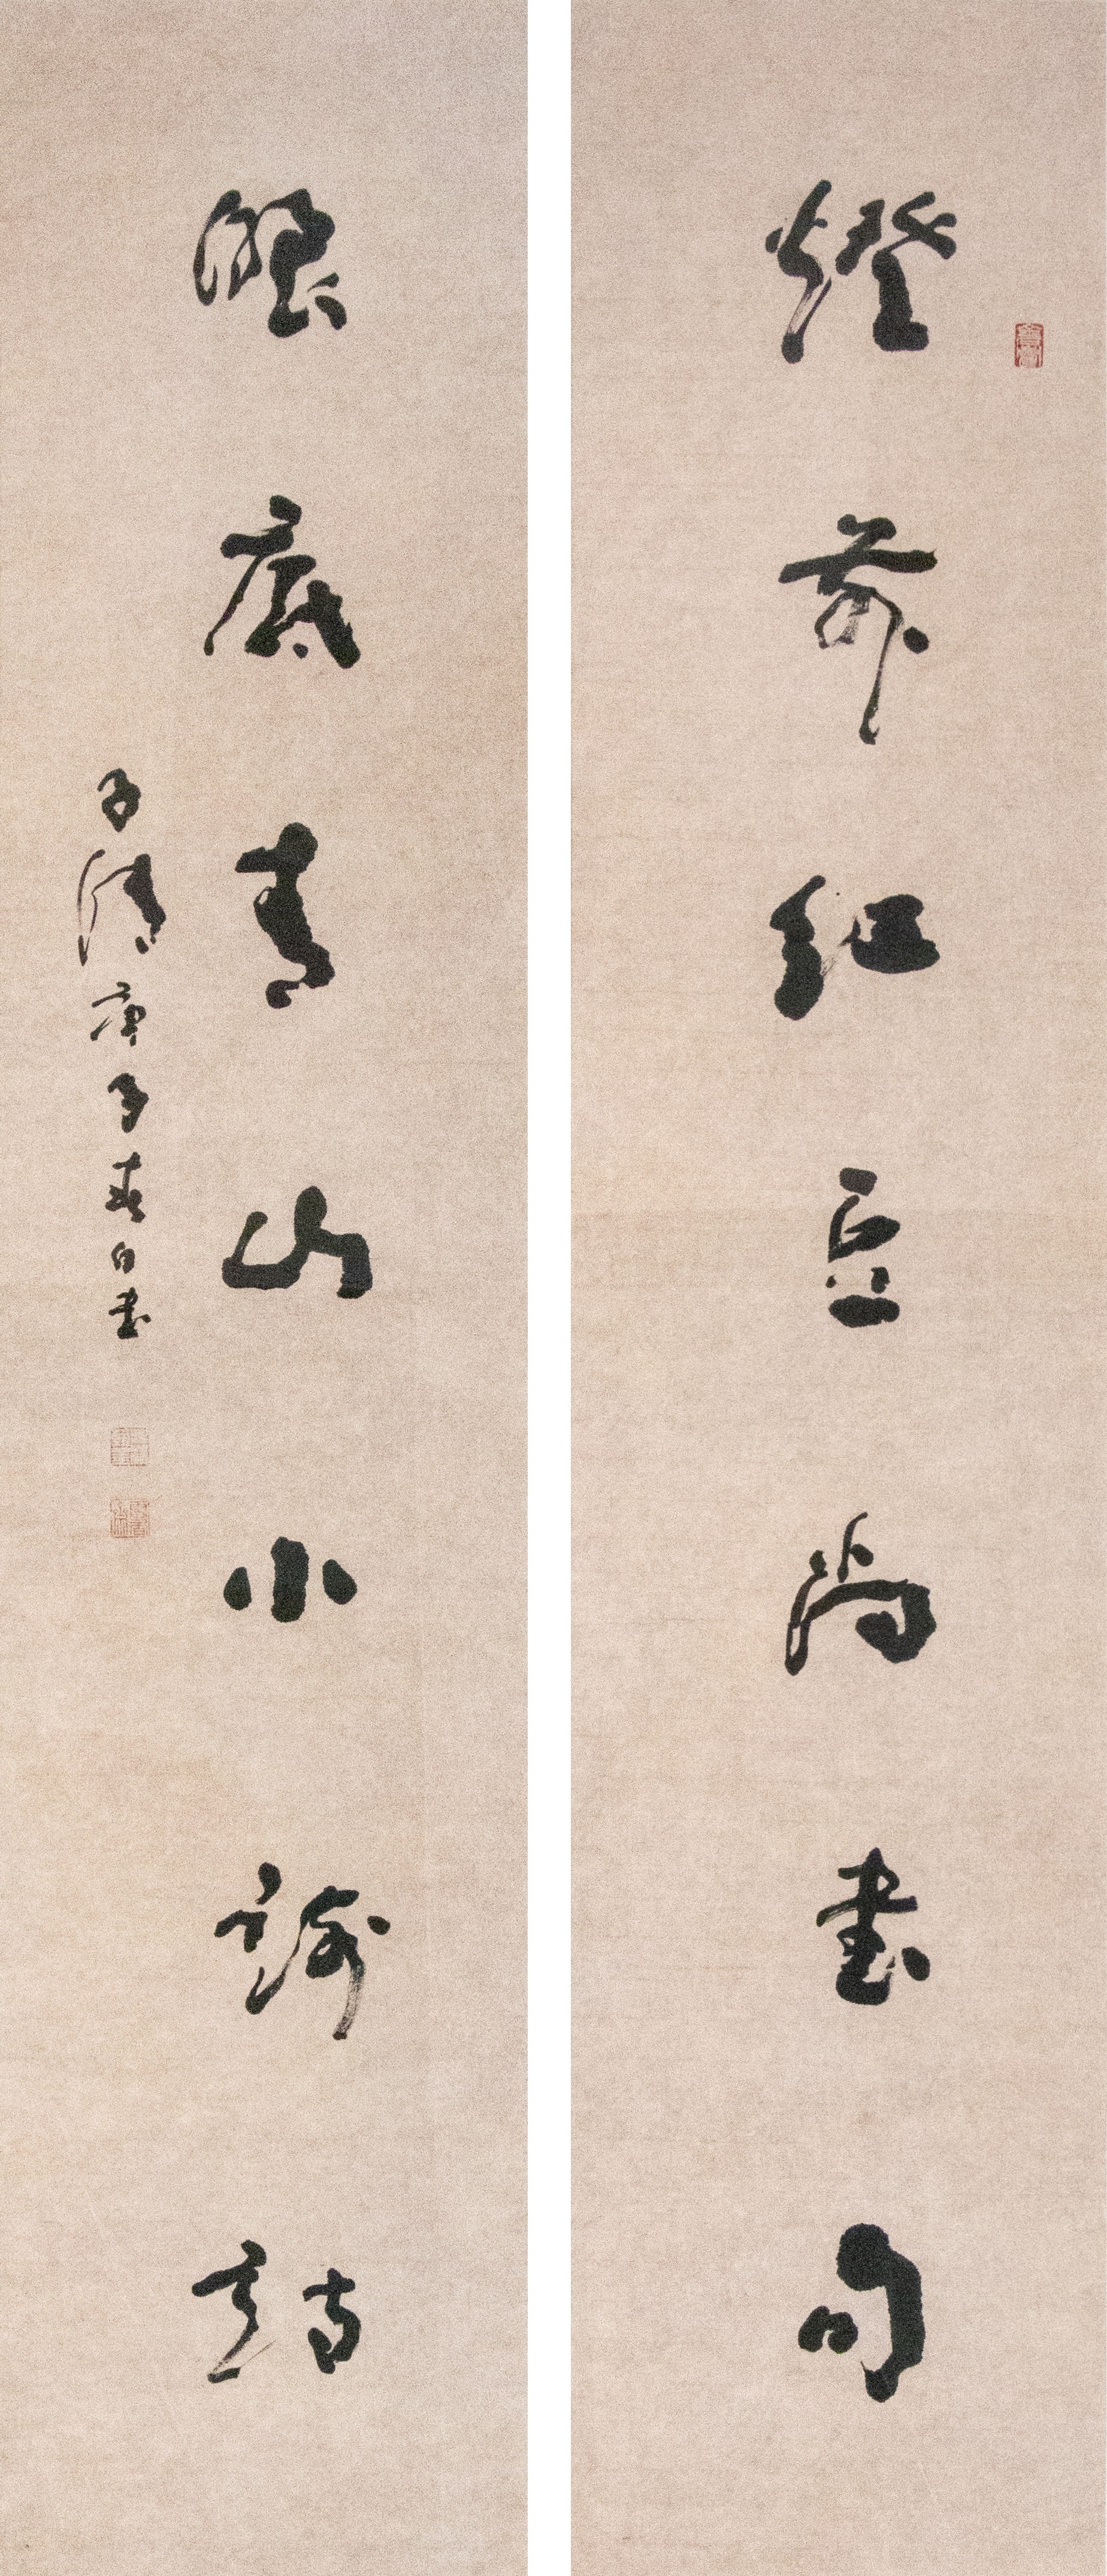 燈前紅豆尚書句
眼底青山小謝詩
子清庚子春日書